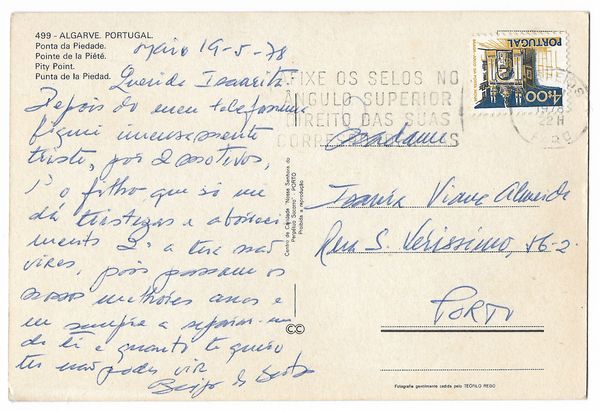 499 - ALGARVE. PORTUGAL.
Ponta da Piedade.
Pointe de la Piété.
Pity Point.
Punta de la Piedad.
19-5-78
Querida Isaurita
Depois do meu telefonema
fiquei imensamente
triste, por 2 motivos,
1º o filho que só me
dá tristezas e aborreci
mentos 2º a tua não
vires, pois passam os
nossos melhores anos e
eu sempre a separar-me
de ti e quanto te quero
tu não podes vir
Beijos do
Centro de Caridade "Nossa Senhora do
Perpétuo Socorro" - PORTO
Proibida a reprodução
PORTUGAL
4.00
FIXE OS SELOS NO
ÂNGULO SUPERIOR
DIREITO DAS SUAS
CORRESPONDÊNCIAS
22H
Madame
Isaura Viana Almeida
Rua S. Veríssimo, 56-2.
PORTO
CC
Fotografia gentilmente cedida pelo TEÓFILO REGO